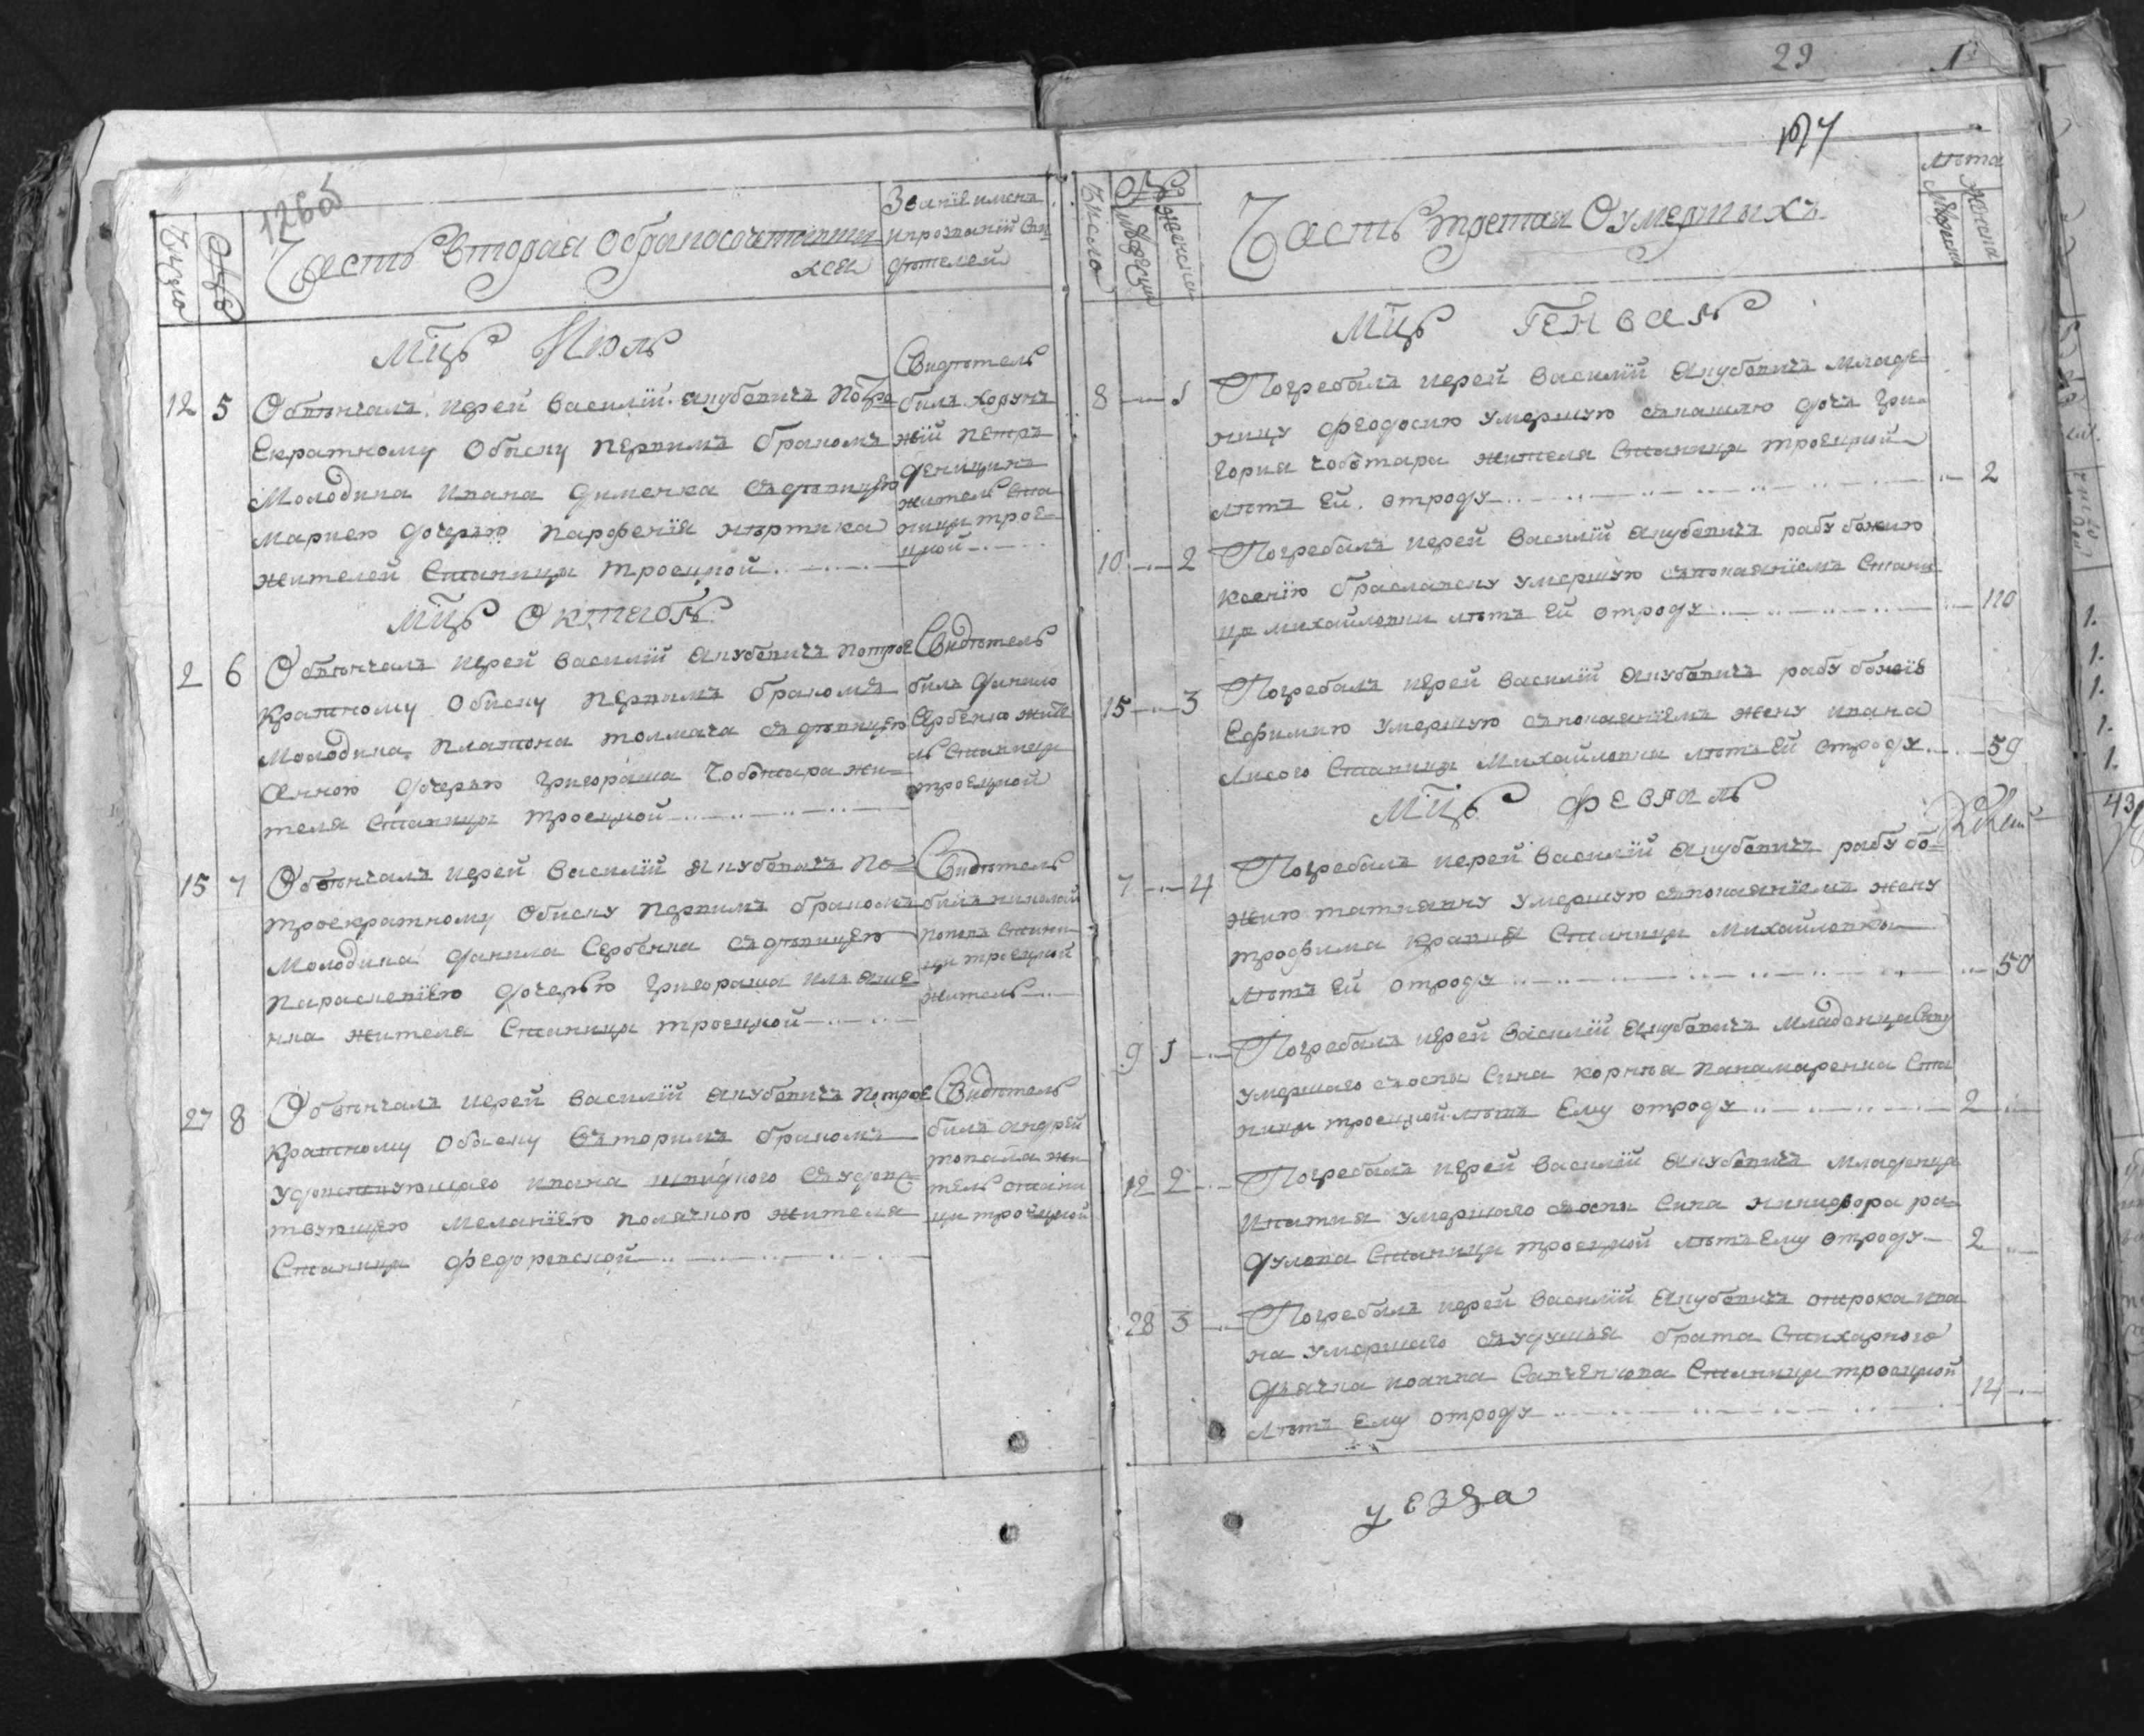 1266
Число
Часть вторая о бракосочетавши
хся
Званiе имена
и прозванiй сви
дѣтелей
Мцъ Июль
12 5 Обвѣнчалъ иерей Василiй Якубовичъ по тро
екратному обыску первимъ бракомъ
молодика Ивана Дименка съ дѣвицею
Мариею дочерью Парфенiя
жителей станицы Троецкой
Свидѣтель
билъ хорун
жiй Петръ
житель ста
ници трое
цкой
Мцъ Октябрь
2 6 Обвѣнчалъ иерей Василiй Якубовичъ по трое
кратному обыску первимъ бракомъ
молодика Платона Толмача съ дѣвицею
Анною дочерью Григораша Чоботара жи
теля станицы Троецкой
Свидѣтель
билъ Данило
Сербенко жите
ль станици
Троецкой
15 7 Обвѣнчалъ иерей Василiй Якубовичъ по
троекратному обиску первимъ бракомъ
молодика Данила Сербенка съ дѣвицею
Параскевiею дочерью Григораша Иляше
нка жителя станицы Троецкой
Свидѣтель
билъ Николай
Поповъ стани
ци Троецкой
житель
27 8 Обвѣнчалъ иерей Василiй Якубовичъ по трое
кратному обыску вторимъ бракомъ
удовствующаго Ивана Швидкого съ удовс
твующею Меланiею Полячкою жителя
станицы Федоровской
Свидѣтель
билъ Андрей
Топала жи
тель стани
ци Троецкой
29
Число
Мужеска
Женска
Часть третая о умершыхъ
Лѣта
Мужска
Женска
Мцъ Генварь
8 1 Погребалъ иерей Василiй Якубовичъ младе
ницу Феодосию умершую съ кашлю дочь Гри
гория Чоботара жителя станицы Троецкой
лѣтъ ей отроду 2
10 2 Погребалъ иерей Василiй Якубовичъ рабу божию
Ксенiю Браславску умершую съ покаянiемъ стани
цы Михайловки лѣтъ ей отроду 110
15 3 Погребалъ иерей Василiй Якубовичъ рабу божiю
Ефимию умершую съ покаянiемъ жену Ивана
Лисого станицы Михайловки лѣтъ ей отроду 59
Мцъ Февраль
7 4 Погребалъ иерей Василiй Якубовичъ рабу бо
жию Татияну умершую съ покаянiемъ жену
Трофима Кравця станицы Михайловки
лѣтъ ей отроду 50
9 1 Погребалъ иерей Василiй Якубовичъ младенца
умершаго съ оспы сина Корнея Панамаренка ста
ницы Троецкой лѣтъ ему отроду 2
12 2 Погребалъ иерей Василiй Якубовичъ младенца
Ипатия умершаго съ оспы сина Никифора Ра
дулова станицы Троецкой лѣтъ ему отроду 2
28 3 Погребалъ иерей Василiй Якубовичъ отрока Ива
на умершаго съ удушья брата стихарного
дьячка Иоанна станицы Троецкой
лѣтъ ему отроду 14
уезда